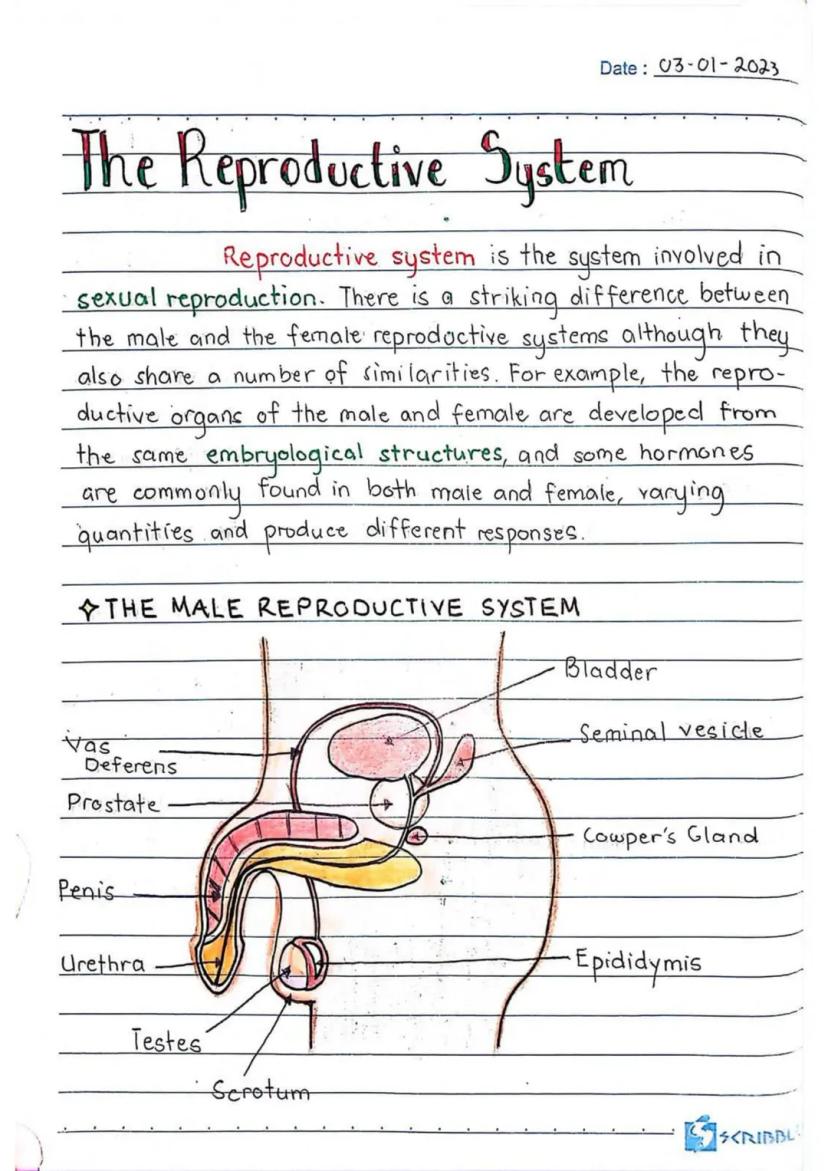 Date : 03-01-2023
The Reproductive System
Reproductive system is the system involved in
sexual reproduction. There is a striking difference between
the male and the female reproductive systems although they
also share a number of similarities. For example, the repro-
ductive organs of the male and female are developed from
the same embryological structures, and some hormones
are commonly found in both male and female, varying
quantities and produce different responses.
✧THE MALE REPRODUCTIVE SYSTEM
Bladder
Seminal vesicle
Vas
Deferens
Prostate
Cowper's Gland
Penis
Urethra
Epididymis
Testes
Scrotum
SCRIBBL